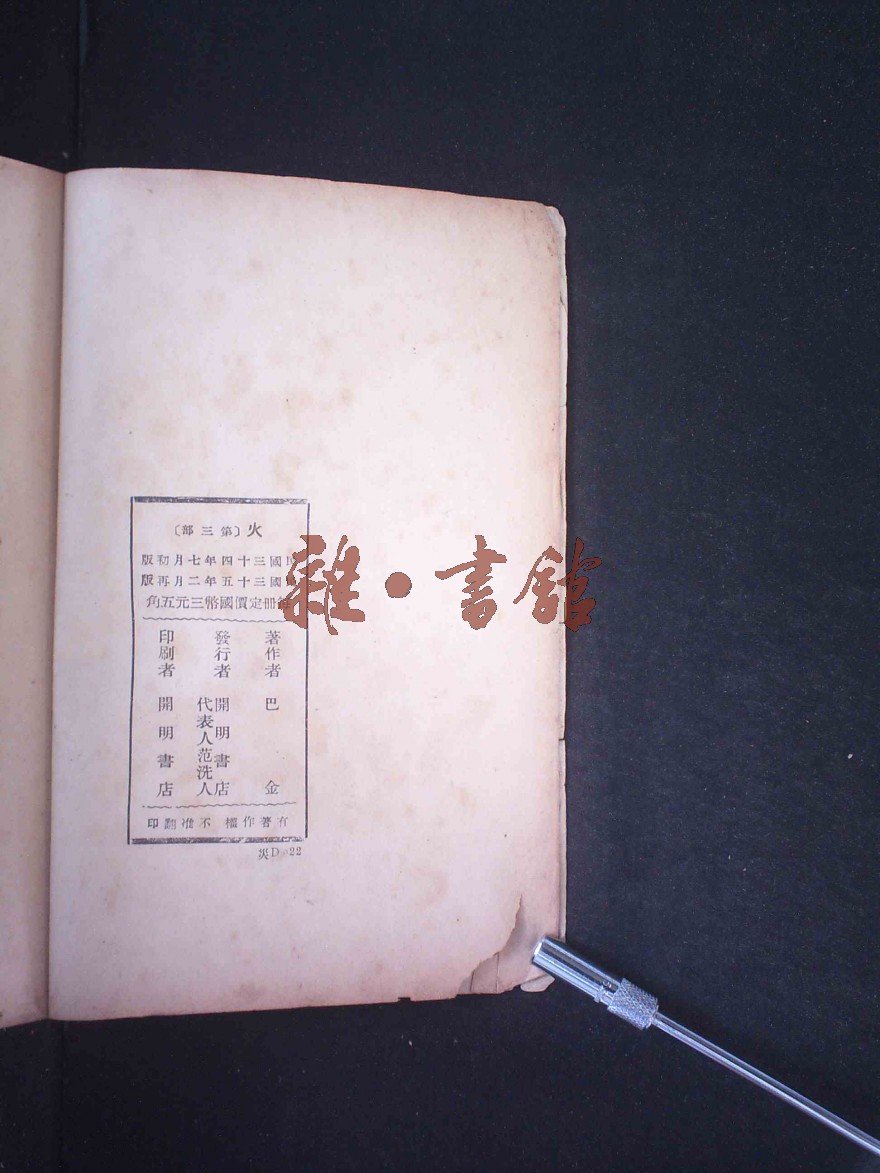 火〔第三部〕
民國三十四年七月初版
民國三十五年二月再版
每冊定價國幣三元五角
著作者 巴金
發行者 開明書店
代表人范洗人
印刷者 開明書店
有著作權 不准翻印
雜·書館